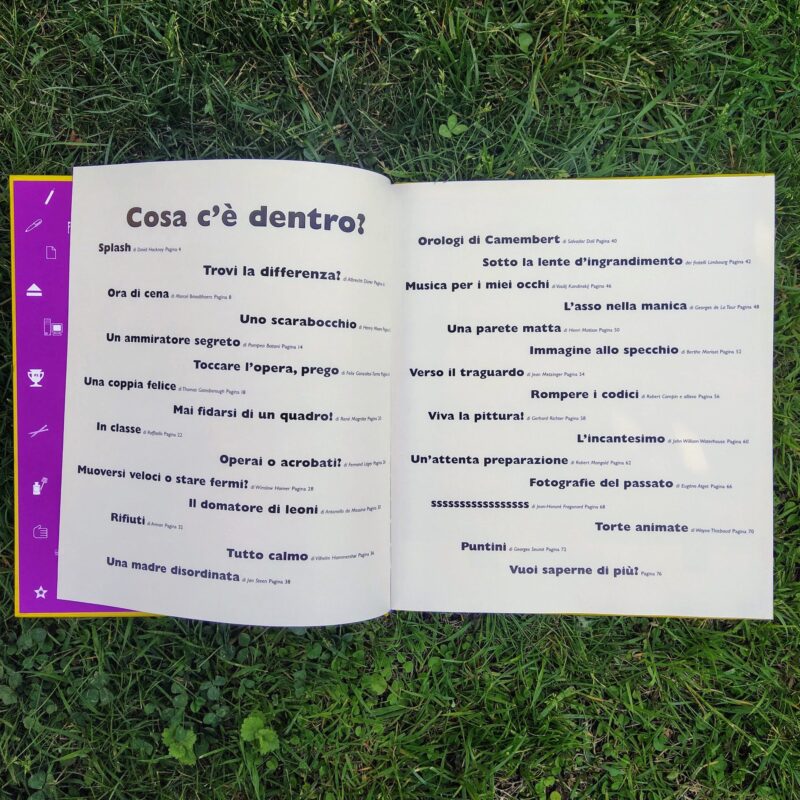 Cosa c'è dentro?
Splash di David Hockney Pagina 4
Trovi la differenza? di Albrecht Dürer Pagina 6
Ora di cena di Marcel Broodthaers Pagina 8
Uno scarabocchio di Henry Moore Pagina
Un ammiratore segreto di Pompeo Batoni Pagina 14
Toccare l'opera, prego di Felix Gonzalez-Torres Pagina
Una coppia felice di Thomas Gainsborough Pagina 18
Mai fidarsi di un quadro! di René Magritte Pagina 20
In classe di Raffaello Pagina 22
Operai o acrobati? di Fernand Léger Pagina
Muoversi veloci o stare fermi? di Winslow Homer Pagina 28
Il domatore di leoni di Antonello da Messina Pagina
Rifiuti di Arman Pagina 32
Tutto calmo di Vilhelm Hammershøi Pagina 34
Una madre disordinata di Jan Steen Pagina 38
Orologi di Camembert di Salvador Dalí Pagina 40
Sotto la lente d'ingrandimento dei fratelli Limbourg Pagina 42
Musica per i miei occhi di Vasilij Kandinskij Pagina 46
L'asso nella manica di Georges de La Tour Pagina 48
Una parete matta di Henri Matisse Pagina 50
Immagine allo specchio di Berthe Morisot Pagina 52
Verso il traguardo di Jean Metzinger Pagina 54
Rompere i codici di Robert Campin e allievo Pagina 56
Viva la pittura! di Gerhard Richter Pagina 58
L'incantesimo di John William Waterhouse Pagina 60
Un'attenta preparazione di Robert Mangold Pagina 62
Fotografie del passato di Eugène Atget Pagina 66
sssssssssssssssss di Jean-Honoré Fragonard Pagina 68
Torte animate di Wayne Thiebaud Pagina 70
Puntini di Georges Seurat Pagina 72
Vuoi saperne di più? Pagina 76